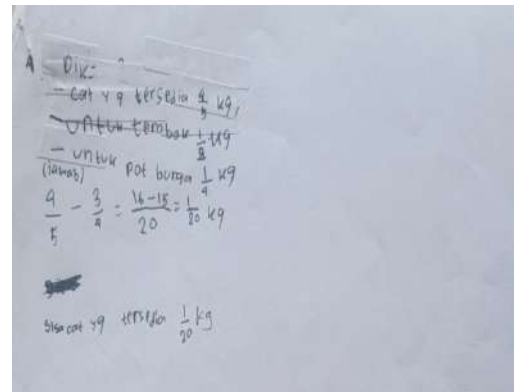 A. Dik:
- Cat yg tersedia 4/5 kg,
- untuk tembok 1/2 kg
- untuk pot bunga 1/4 kg
(jawab)
4/5 - 3/4 = 16-15/20 = 1/20 kg
Sisa cat yg tersedia 1/20 kg